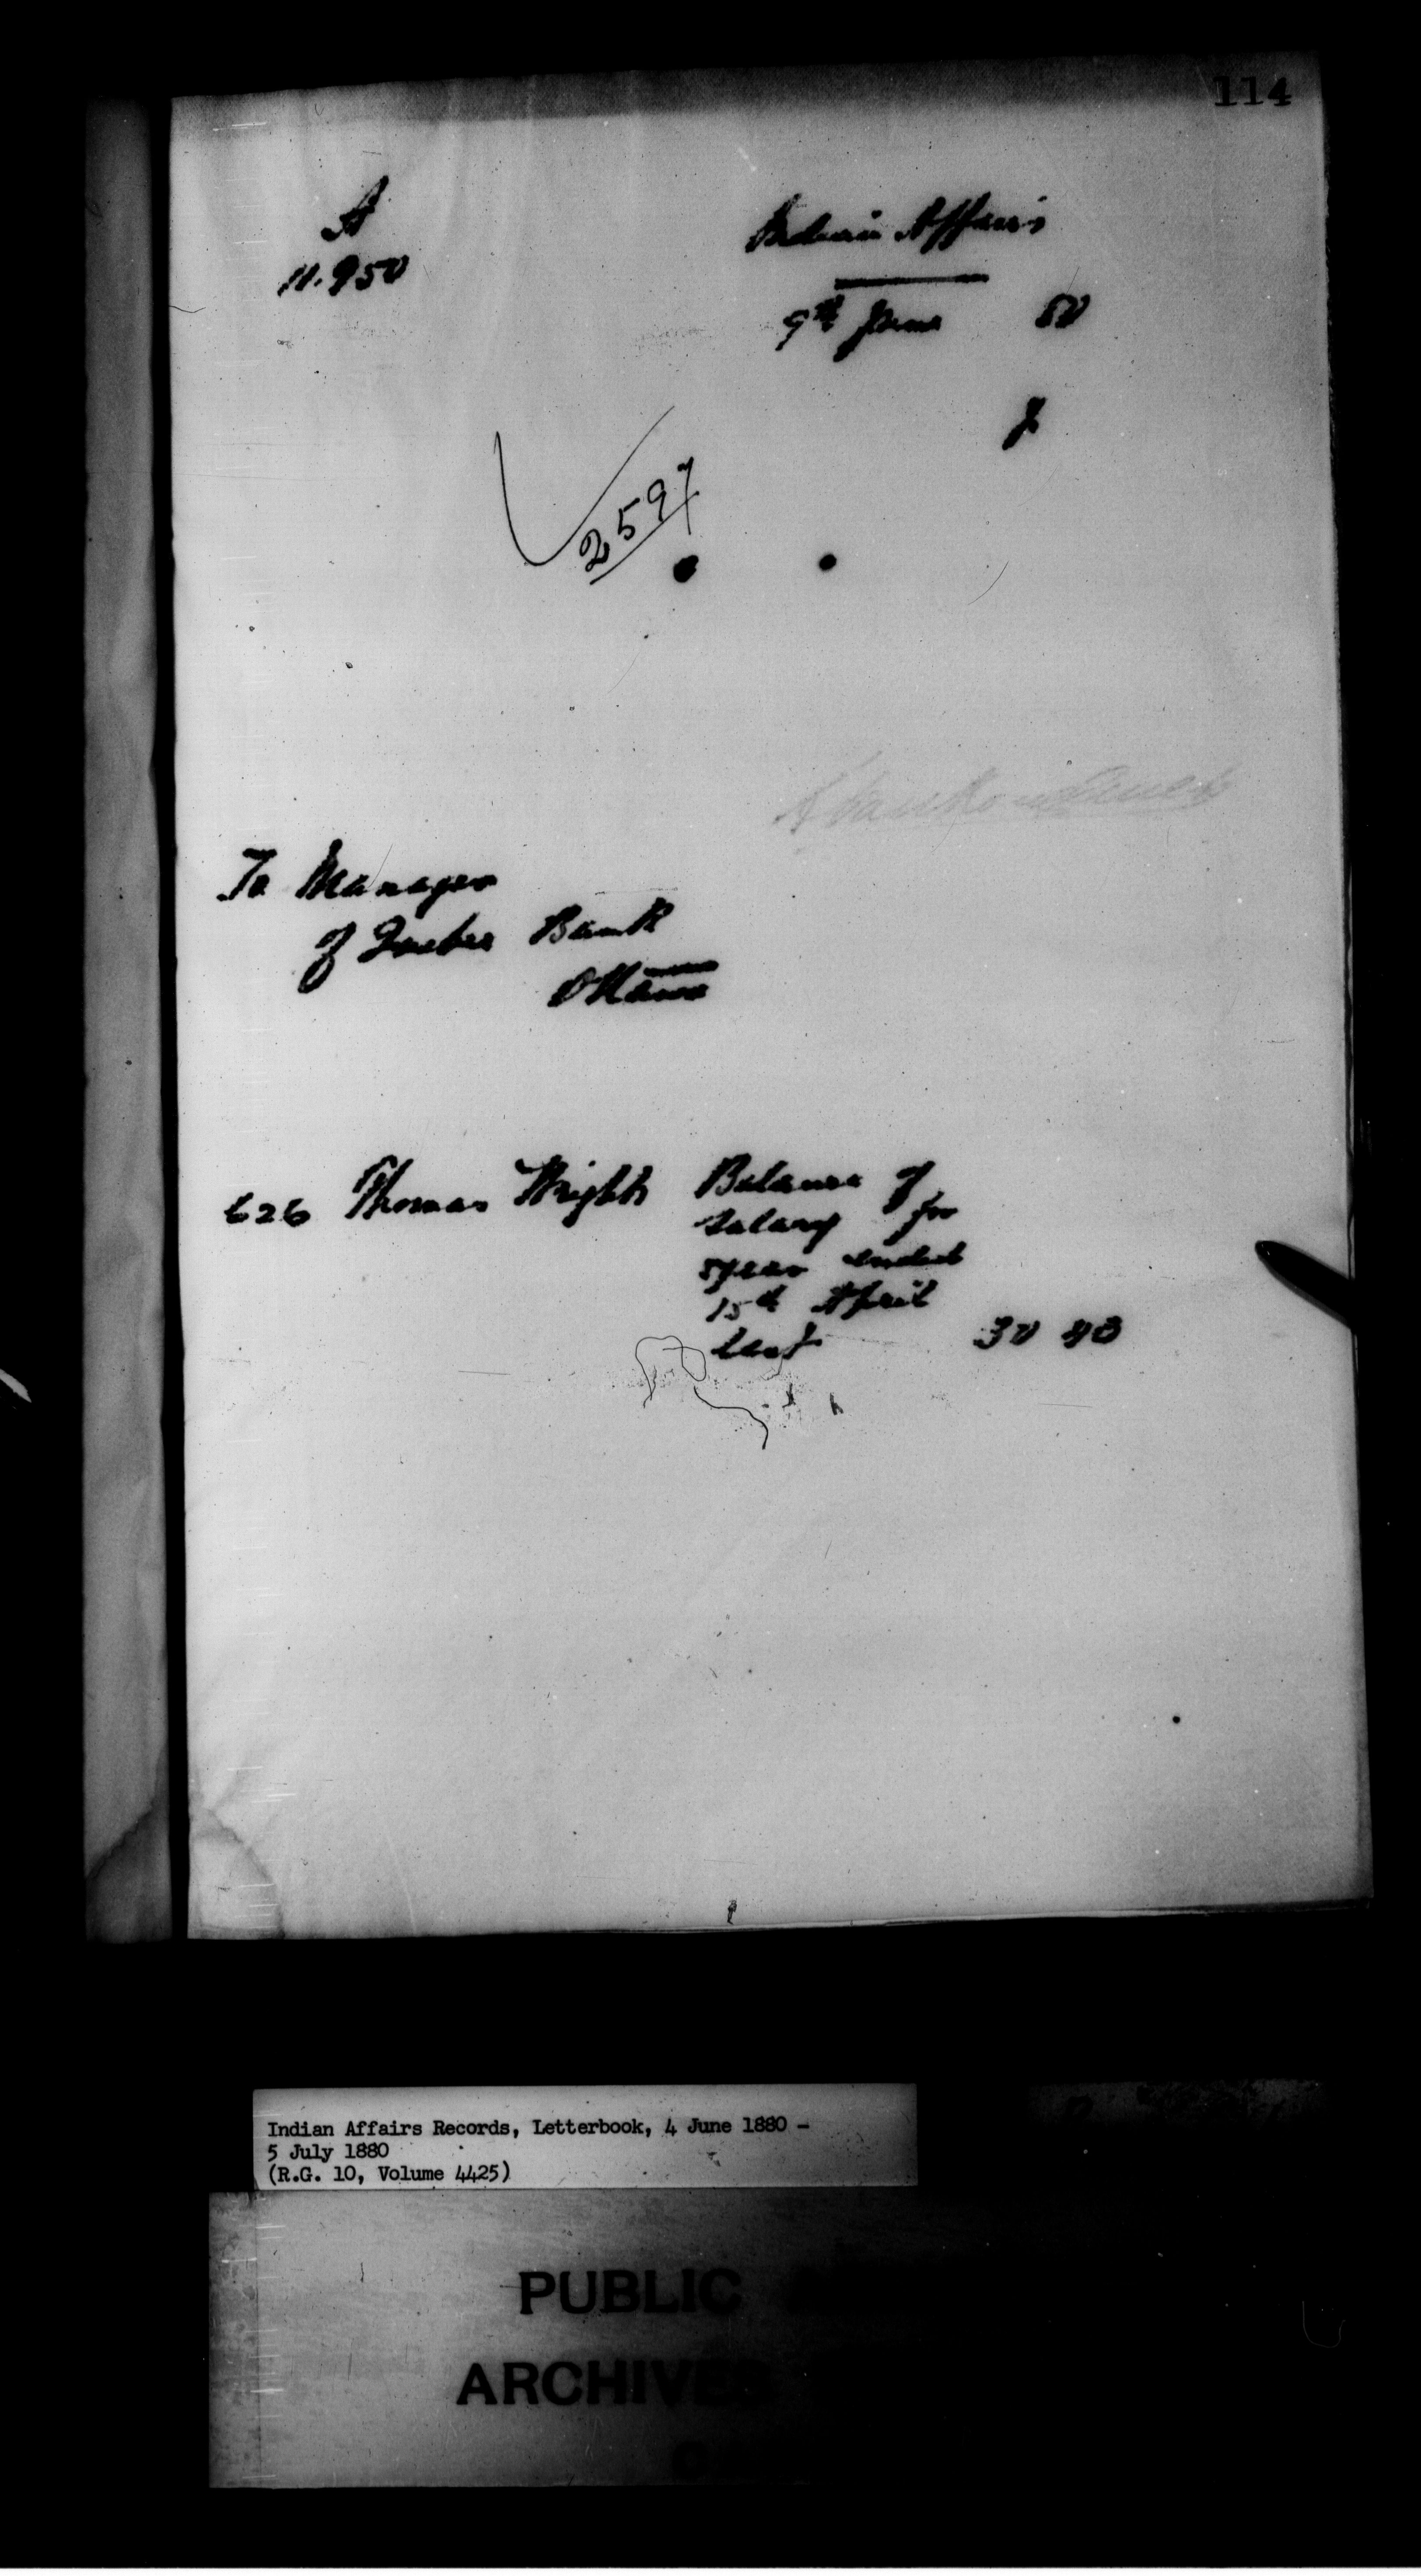 114
A
11.950
Indian Affairs
9th June 80
2597
To Manager
of Quebec Bank
Ottawa
626 Thomas Wright Balance of
Salary for
year ended
15th April
last 30 40
Indian Affairs Records, Letterbook, 4 June 1880 -
5 July 1880
(R.G. 10, Volume 4425)
PUBLIC
ARCHIVES